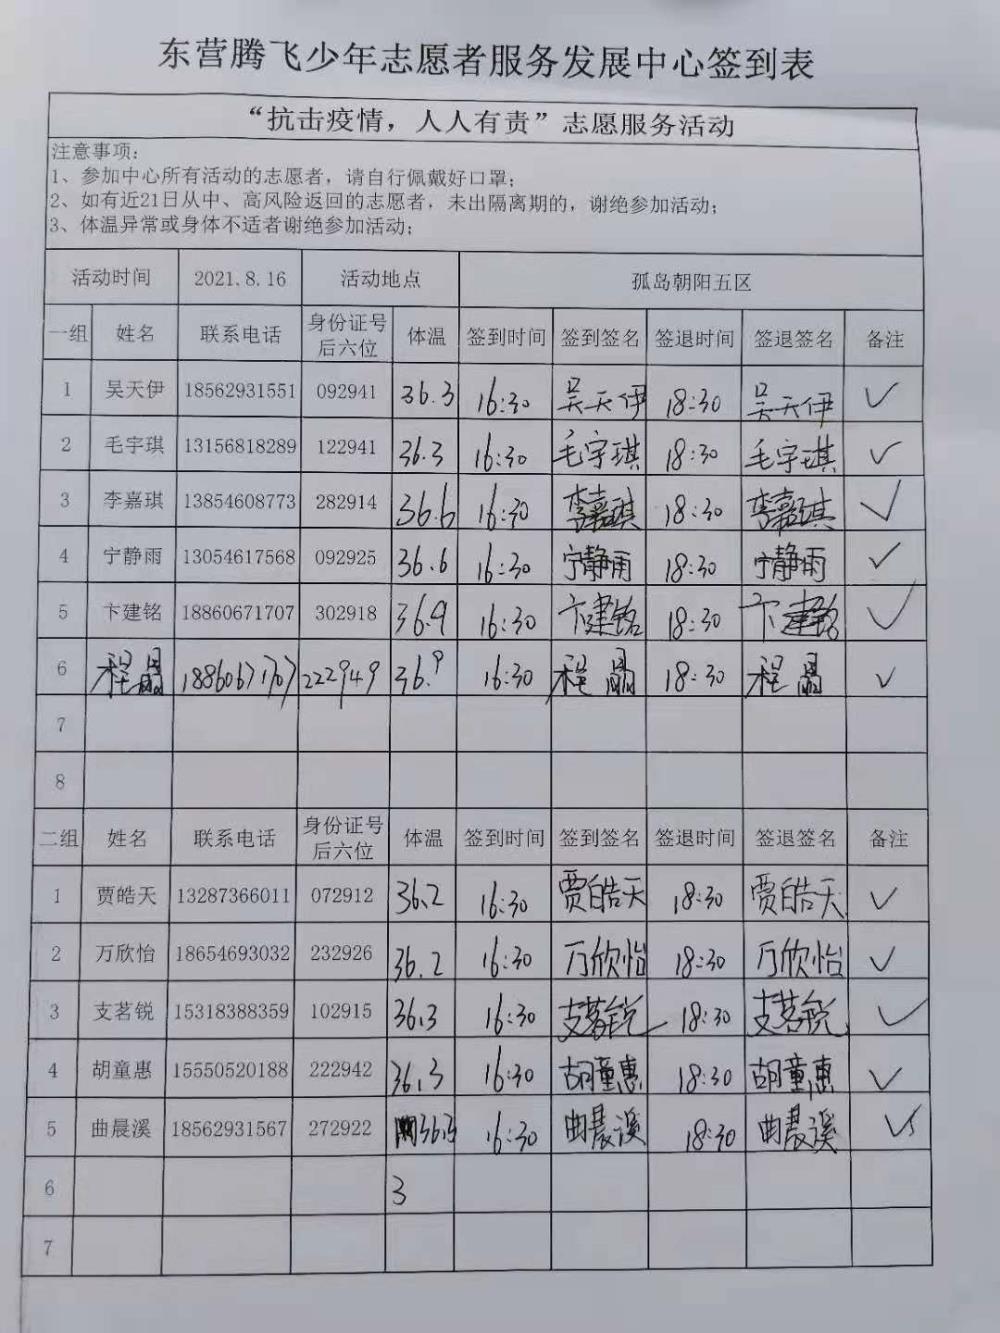 东营腾飞少年志愿者服务发展中心签到表
“抗击疫情，人人有责”志愿服务活动
注意事项：
1、参加中心所有活动的志愿者，请自行佩戴好口罩；
2、如有近21日从中、高风险返回的志愿者，未出隔离期的，谢绝参加活动；
3、体温异常或身体不适者谢绝参加活动；
活动时间 2021.8.16 活动地点 孤岛朝阳五区
一组 姓名 联系电话 身份证号后六位 体温 签到时间 签到签名 签退时间 签退签名 备注
1 吴天伊 18562931551 092941 36.3 16:30 吴天伊 18:30 吴天伊 ✓
2 毛宇琪 13156818289 122941 36.3 16:30 毛宇琪 18:30 毛宇琪 ✓
3 李嘉琪 13854608773 282914 36.6 16:30 李嘉琪 18:30 李嘉琪 ✓
4 宁静雨 13054617568 092925 36.6 16:30 宁静雨 18:30 宁静雨 ✓
5 卞建铭 18860671707 302918 36.9 16:30 卞建铭 18:30 卞建铭 ✓
6 程晶 18860671707 222949 36.9 16:30 程晶 18:30 程晶 ✓
7
8
二组 姓名 联系电话 身份证号后六位 体温 签到时间 签到签名 签退时间 签退签名 备注
1 贾皓天 13287366011 072912 36.2 16:30 贾皓天 18:30 贾皓天 ✓
2 万欣怡 18654693032 232926 36.2 16:30 万欣怡 18:30 万欣怡 ✓
3 支茗锐 15318388359 102915 36.3 16:30 支茗锐 18:30 支茗锐 ✓
4 胡童惠 15550520188 222942 36.3 16:30 胡童惠 18:30 胡童惠 ✓
5 曲晨溪 18562931567 272922 36.3 16:30 曲晨溪 18:30 曲晨溪 ✓
6 3
7